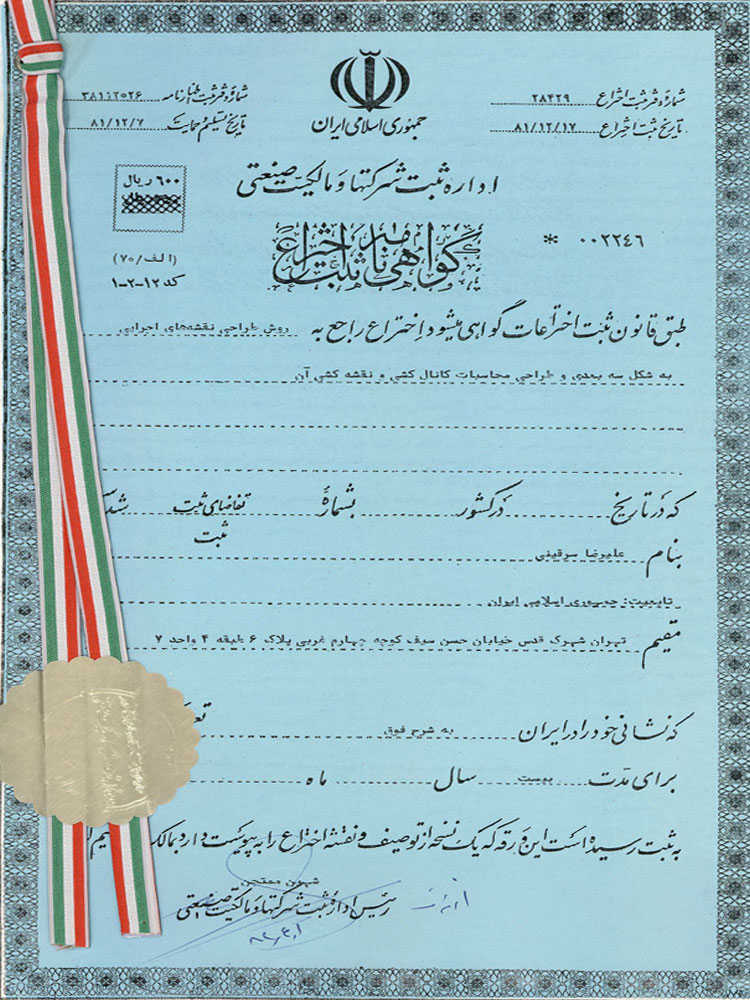 جمهوری اسلامی ایران
شماره ثبت اختراع ۲۸۴۲۹
تاریخ ثبت اختراع ۸۱/۱۲/۱۷
شماره ثبت اظهارنامه ۳۸۱۱۲۵۲۶
تاریخ تسلیم و حمایت ۸۱/۱۲/۷
اداره ثبت شرکتها و مالکیت صنعتی
۶۰۰ ریال
۰۰۲۲۴۶ *
گواهی نامه ثبت اختراع
(الف/۷۰)
کد ۱۲-۲-۱
طبق قانون ثبت اختراعات گواهی میشود اختراع راجع به روش طراحی نقشه‌های اجرایی
به شکل سه بعدی و طراحی محاسبات کانال کشی و نقشه کشی آن
که در تاریخ در کشور بشماره تقاضای ثبت شده
ثبت
بنام علیرضا سرقینی
تابعیت: جمهوری اسلامی ایران
مقیم تهران شهرک قدس خیابان حسن سیف کوچه چهارم غربی پلاک ۶ طبقه ۴ واحد ۷
که نشانی خود را در ایران به شرح فوق
برای مدت بیست سال ماه
به ثبت رسیده است این ورقه که یک نسخه از توصیف و نقشه اختراع را به پیوست دارد بمالک
رئیس اداره ثبت شرکتها و مالکیت صنعتی